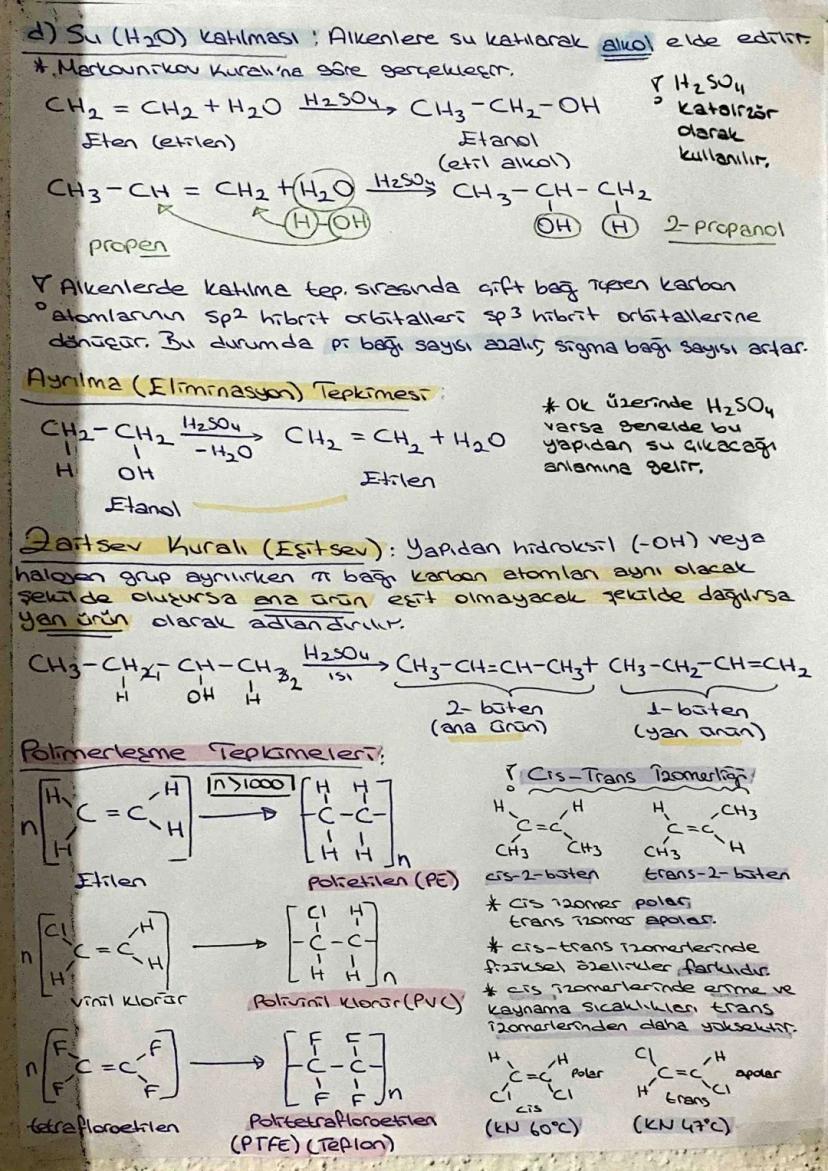 d) Su (H2O) katılması : Alkenlere su katılarak alkol elde edilir.
* Markovnikov Kuralı'na göre gerçekleşir.
CH2 = CH2 + H2O H2SO4 → CH3 - CH2 - OH
Eten (etilen) Etanol
(etil alkol)
H2SO4
katalizör
olarak
kullanılır.
CH3 - CH = CH2 + H2O H2SO4 → CH3 - CH - CH2
H - OH
OH H 2-propanol
propen
Alkenlerde katılma tep. sırasında çift bağ içeren karbon
atomlarının sp2 hibrit orbitalleri sp3 hibrit orbitallerine
dönüşür. Bu durumda pi bağı sayısı azalır, sigma bağı sayısı artar.
Ayrılma (Eliminasyon) Tepkimesi :
CH2 - CH2 H2SO4 → CH2 = CH2 + H2O
-H2O
H OH
Etanol Etilen
* Ok üzerinde H2SO4
varsa genelde bu
yapıdan su çıkacağı
anlamına gelir.
Zaitsev Kuralı (Eşitsev) : Yapıdan hidroksil (-OH) veya
halojen grup ayrılırken π bağı karbon atomları aynı olacak
şekilde oluşursa ana ürün eşit olmayacak şekilde dağılırsa
yan ürün olarak adlandırılır.
CH3 - CH - CH - CH2 H2SO4 → CH3-CH=CH-CH3 + CH3-CH2-CH=CH2
ısı
H OH H
2-büten 1-büten
(ana ürün) (yan ürün)
Polimerleşme Tepkimeleri :
n [H H C = C H H] n>1000 → [H H - C - C - H H]n
Etilen Polietilen (PE)
n [Cl H C = C H H] → [Cl H - C - C - H H]n
vinil klorür Polivinil Klorür (PVC)
n [F F C = C F F] → [F F - C - C - F F]n
tetrafloroetilen Politetrafloroetilen
(PTFE) (Teflon)
Cis-Trans İzomerliği
H H H CH3
C=C C=C
CH3 CH3 CH3 H
cis-2-büten trans-2-büten
* cis izomer polar,
trans izomer apolar.
* cis-trans izomerlerinde
fiziksel özellikler farklıdır.
* cis izomerlerinde erime ve
kaynama sıcaklıkları trans
izomerlerinden daha yüksektir.
H H Cl H
C=C polar C=C apolar
Cl Cl H Cl
cis trans
(KN 60°C) (KN 47°C)